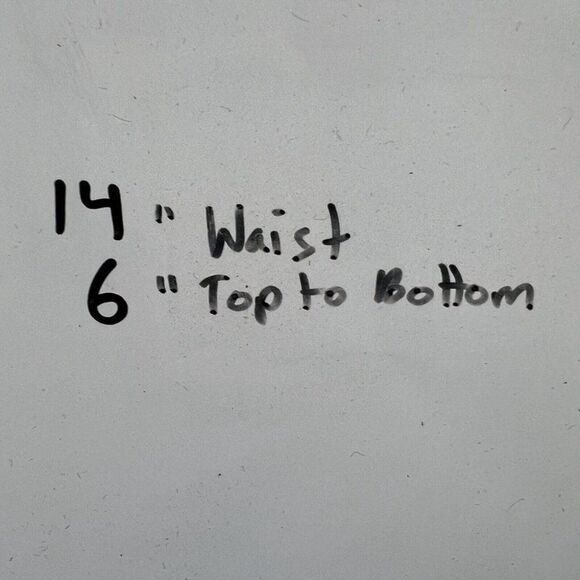 14 " Waist
6 " Top to Bottom